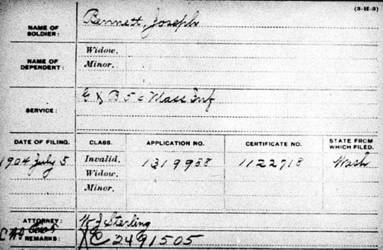 (3-H-3)
NAME OF SOLDIER: Bennett, Joseph
NAME OF DEPENDENT: Widow.
Minor.
SERVICE: B 5 Mass Inf
DATE OF FILING. CLASS. APPLICATION NO. CERTIFICATE NO. STATE FROM WHICH FILED.
1904 July 5 Invalid. 1319938 1122718 Wash
Widow.
Minor.
ATTORNEY: Sterling
REMARKS: 2491505